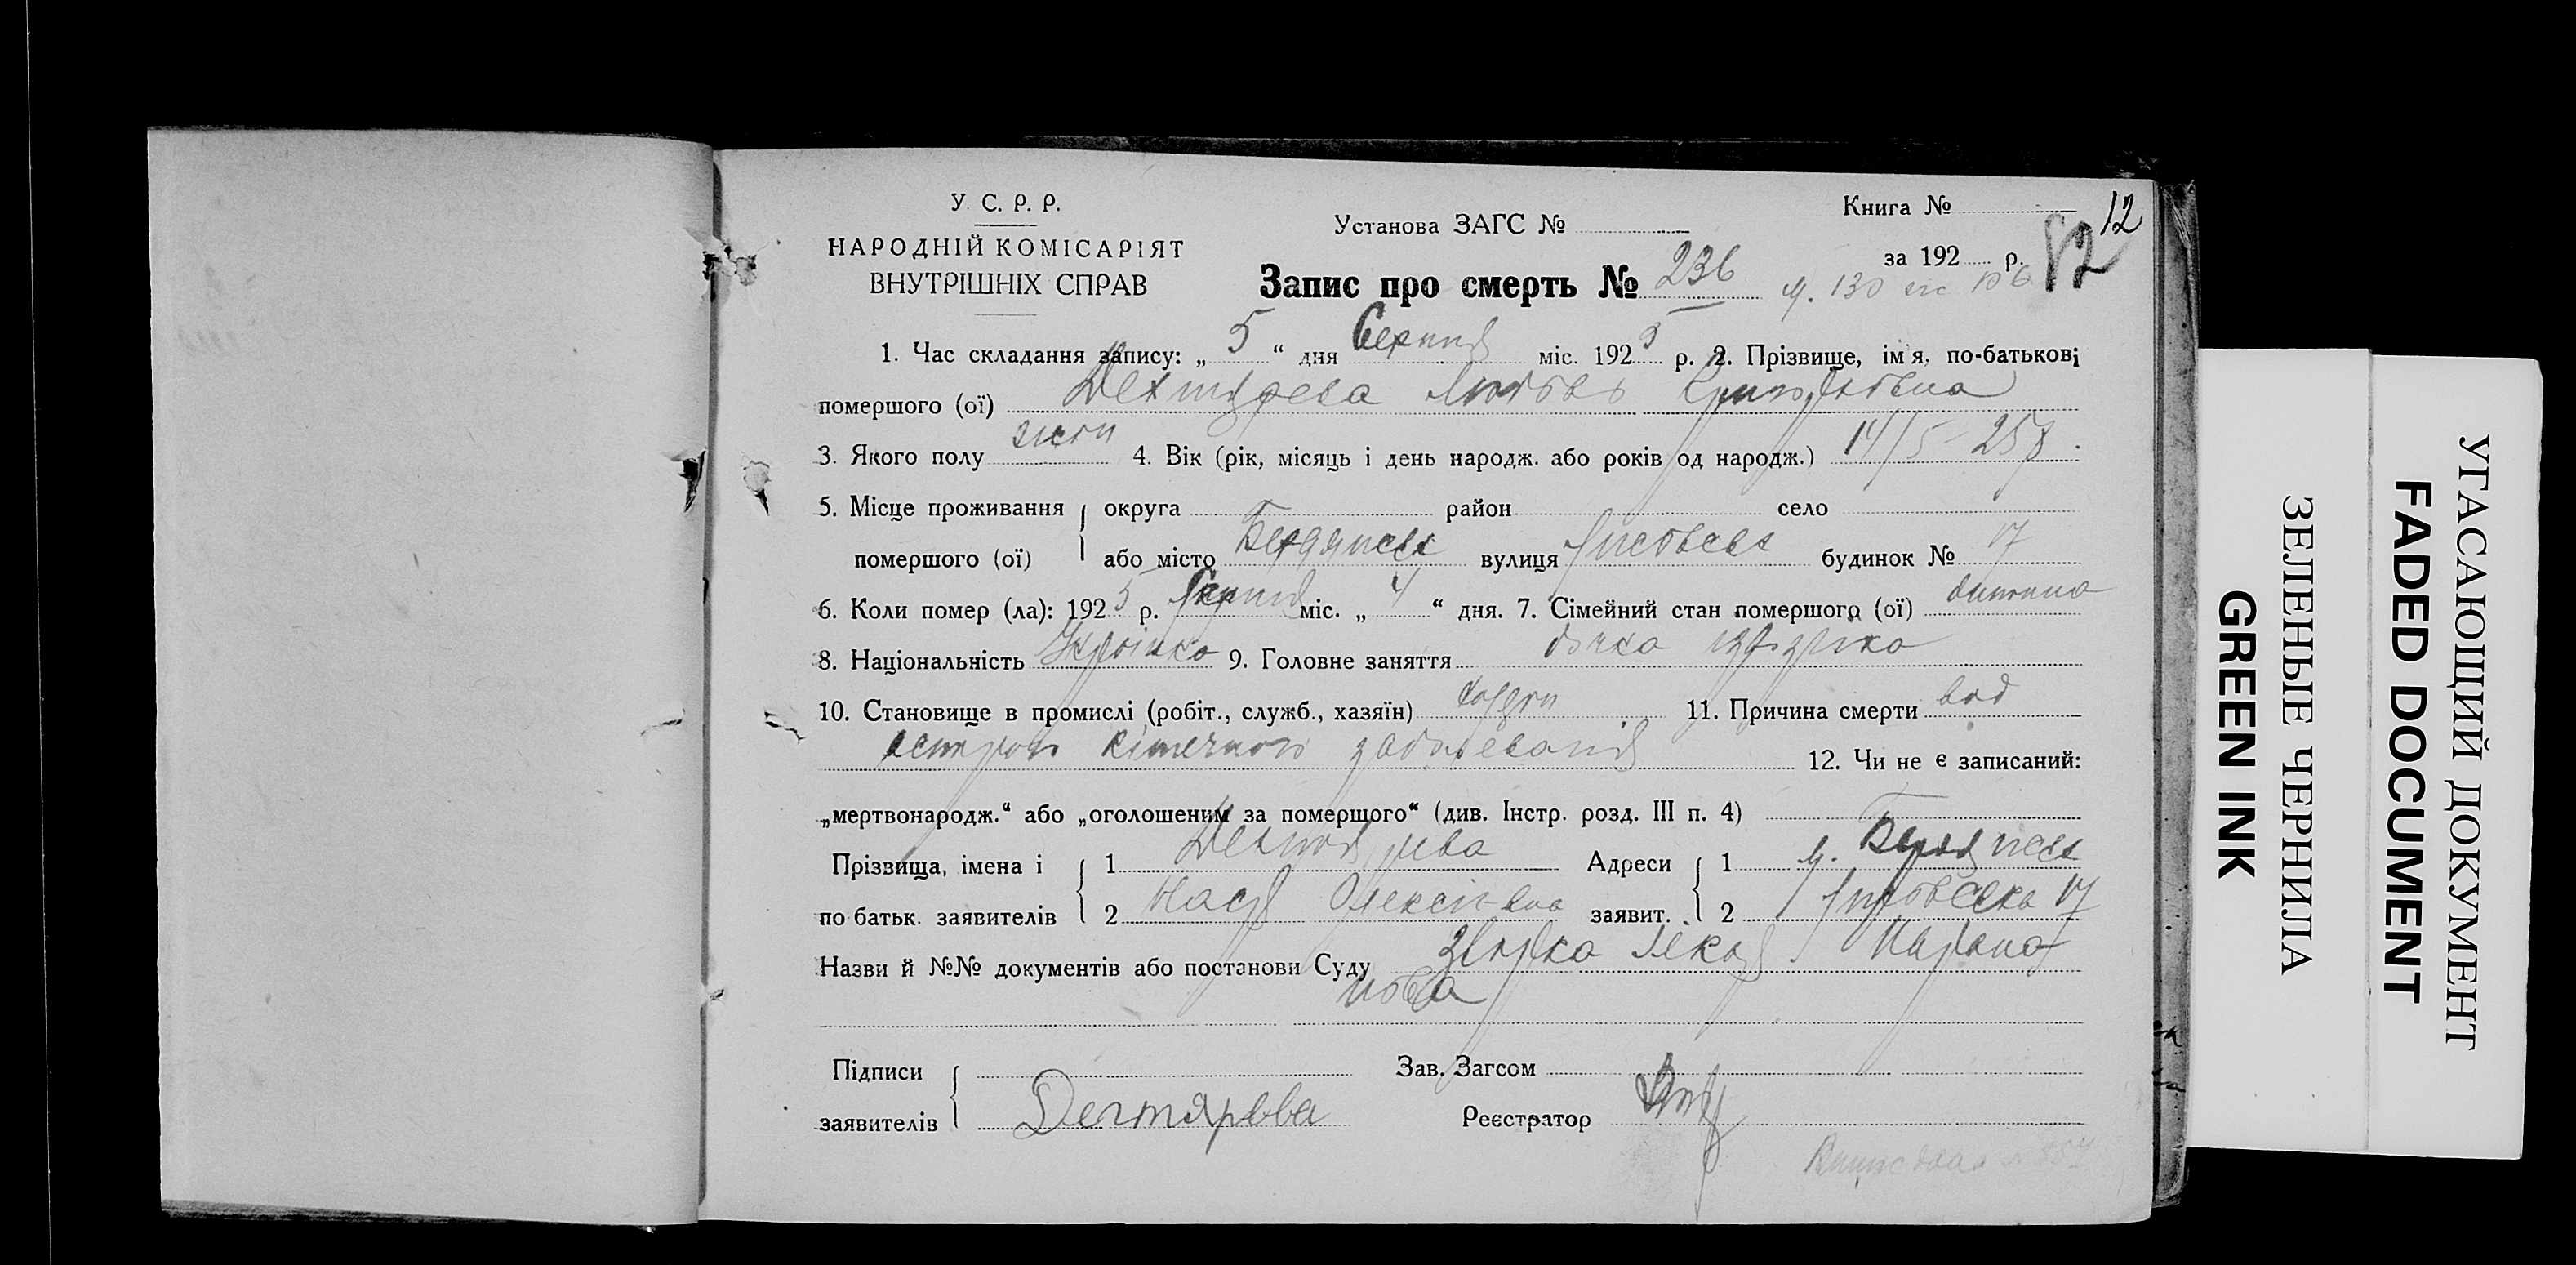 У. С. Р. Р.
НАРОДНІЙ КОМІСАРІЯТ
ВНУТРІШНІХ СПРАВ
Установа ЗАГС №
Книга №
12
за 192 р.
82
Запис про смерть № 236
1. Час складання запису: „ 5 “ дня Серпня міс. 192 5 р. 2. Прізвище, ім'я, по-батькові
помершого (ої) Дехтярева Любовь Григорьовна
3. Якого полу жіноч 4. Вік (рік, місяць і день народж. або років од народж.) 14/5-25 р.
5. Місце проживання округа район село
помершого (ої) або місто Бердянськ вулиця будинок № 17
6. Коли помер (ла): 192 5 р. Серпня міс. „ 4 “ дня. 7. Сімейний стан помершого (ої) дитина
8. Національність Українка 9. Головне заняття дочка
10. Становище в промислі (робіт., служб., хазяїн) 11. Причина смерти від
острого кішечного заболевания 12. Чи не є записаний:
„мертвонародж.“ або „оголошеним за померщого“ (див. Інстр. розд. III п. 4)
Прізвища, імена і 1 Дехтярева Адреси 1 м. Бердянськ
по батьк. заявителів 2 Олексіевна заявит. 2 17
Назви й №№ документів або постанови Суду
Підписи
заявителів Дегтярева
Зав. Загсом
Реєстратор
УГАСАЮЩИЙ ДОКУМЕНТ
FADED DOCUMENT
ЗЕЛЕНЫЕ ЧЕРНИЛА
GREEN INK